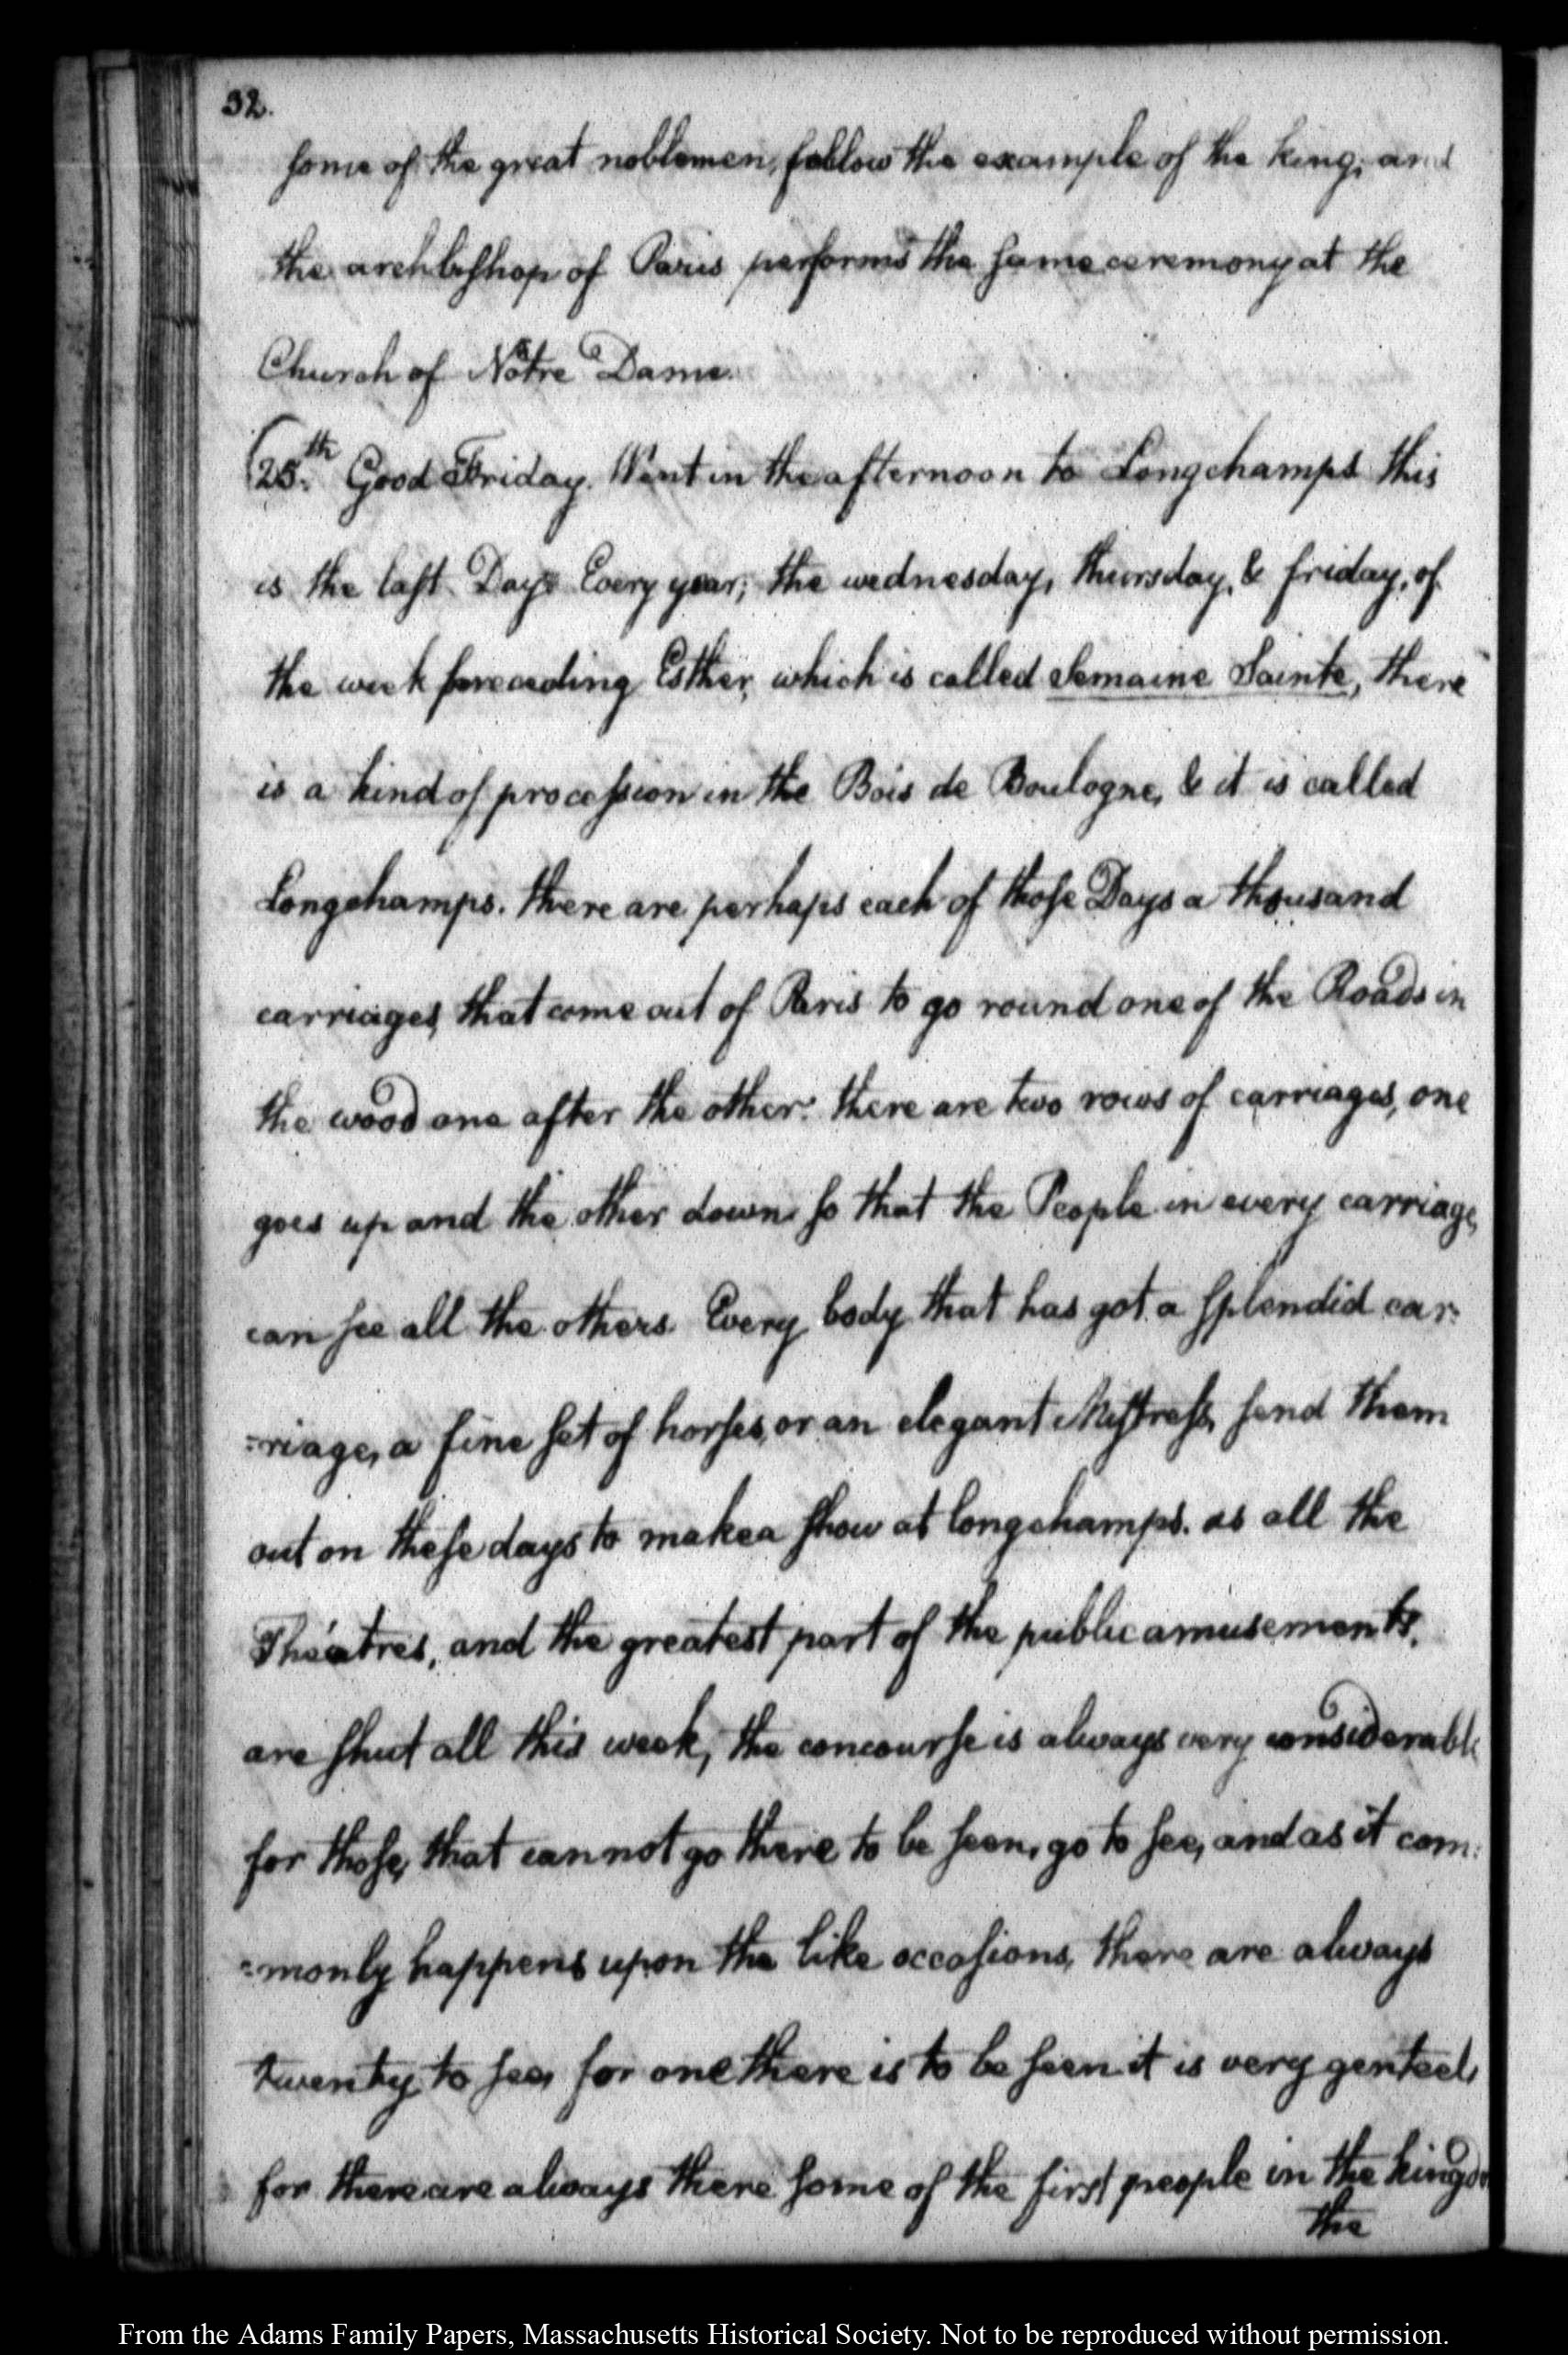 32.
some of the great noblemen, follow the example of the king, and
the archbishop of Paris performs the same ceremony at the
Church of Nôtre Dame.
25.th Good Friday. Went in the afternoon to Longchamps this
is the last Day. Every year, the wednesday, thursday, & friday, of
the week preceeding Esther, which is called Semaine Sainte, there
is a kind of procession in the Bois de Boulogne, & it is called
Longchamps. there are perhaps each of those Days a thousand
carriages, that come out of Paris to go round one of the Roads in
the wood one after the other. there are two rows of carriages, one
goes up and the other down so that the People in every carriage,
can see all the others. Every body that has got a splendid car:
:riage, a fine set of horses, or an elegant Mistress, send them
out on these days to make a show at longchamps. as all the
Théatres, and the greatest part of the public amusements,
are shut all this week, the concourse is always very considerable
for those, that cannot go there to be seen, go to see, and as it com:
:monly happens upon the like occasions, there are always
twenty to see, for one there is to be seen. it is very genteel,
for there are always there some of the first people in the kingdo
the
From the Adams Family Papers, Massachusetts Historical Society. Not to be reproduced without permission.